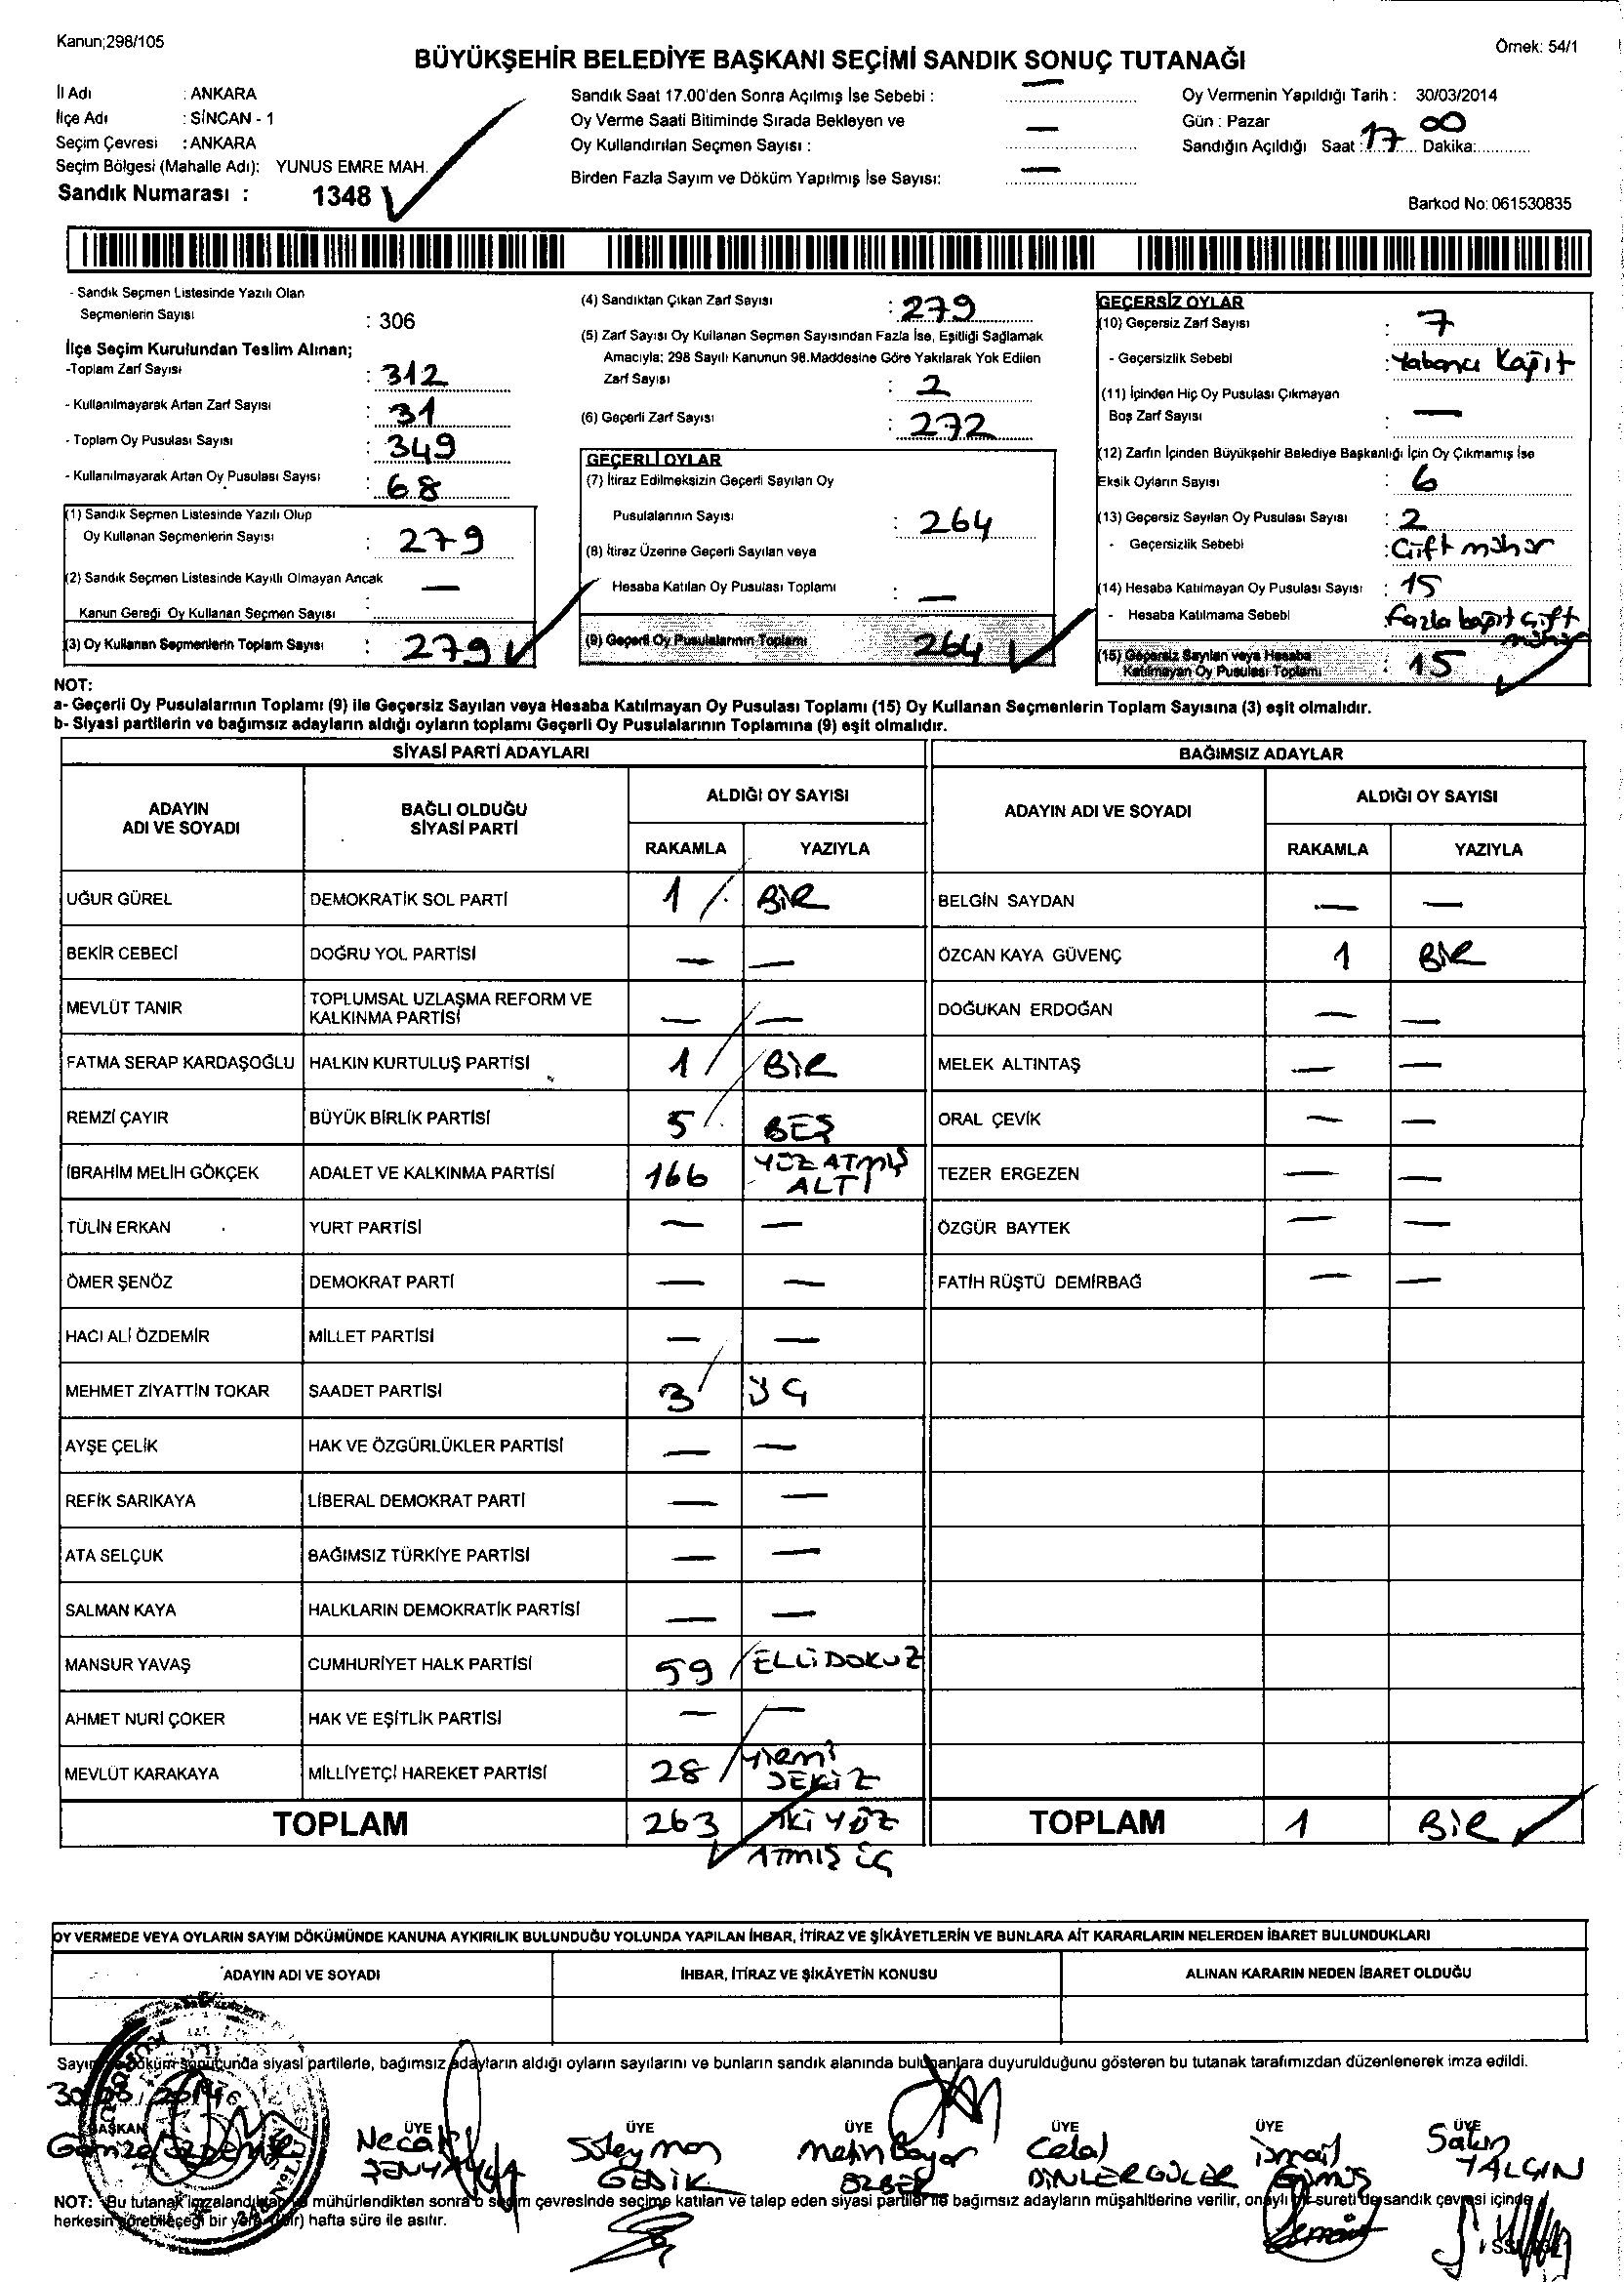 Kanun;298/105
Örnek: 54/1
BÜYÜKŞEHİR BELEDİYE BAŞKANI SEÇİMİ SANDIK SONUÇ TUTANAĞI
İl Adı : ANKARA
İlçe Adı : SİNCAN - 1
Seçim Çevresi : ANKARA
Seçim Bölgesi (Mahalle Adı): YUNUS EMRE MAH.
Sandık Numarası : 1348
Sandık Saat 17.00'den Sonra Açılmış İse Sebebi : —
Oy Verme Saati Bitiminde Sırada Bekleyen ve
Oy Kullandırılan Seçmen Sayısı : —
Birden Fazla Sayım ve Döküm Yapılmış İse Sayısı: —
Oy Vermenin Yapıldığı Tarih : 30/03/2014
Gün : Pazar
Sandığın Açıldığı Saat : 17 Dakika: 00
Barkod No: 061530835
- Sandık Seçmen Listesinde Yazılı Olan
Seçmenlerin Sayısı : 306
İlçe Seçim Kurulundan Teslim Alınan;
-Toplam Zarf Sayısı : 312
- Kullanılmayarak Artan Zarf Sayısı : 31
- Toplam Oy Pusulası Sayısı : 349
- Kullanılmayarak Artan Oy Pusulası Sayısı : 68
(1) Sandık Seçmen Listesinde Yazılı Olup
Oy Kullanan Seçmenlerin Sayısı : 279
(2) Sandık Seçmen Listesinde Kayıtlı Olmayan Ancak
Kanun Gereği Oy Kullanan Seçmen Sayısı : —
(3) Oy Kullanan Seçmenlerin Toplam Sayısı : 279
(4) Sandıktan Çıkan Zarf Sayısı : 279
(5) Zarf Sayısı Oy Kullanan Seçmen Sayısından Fazla İse, Eşitliği Sağlamak
Amacıyla; 298 Sayılı Kanunun 98.Maddesine Göre Yakılarak Yok Edilen
Zarf Sayısı : 2
(6) Geçerli Zarf Sayısı : 272
GEÇERLİ OYLAR
(7) İtiraz Edilmeksizin Geçerli Sayılan Oy
Pusulalarının Sayısı : 264
(8) İtiraz Üzerine Geçerli Sayılan veya
Hesaba Katılan Oy Pusulası Toplamı : —
(9) Geçerli Oy Pusulalarının Toplamı 264
GEÇERSİZ OYLAR
(10) Geçersiz Zarf Sayısı : 7
- Geçersizlik Sebebi : Yabancı Kağıt
(11) İçinden Hiç Oy Pusulası Çıkmayan
Boş Zarf Sayısı : —
(12) Zarfın İçinden Büyükşehir Belediye Başkanlığı İçin Oy Çıkmamış İse
Eksik Oyların Sayısı : 6
(13) Geçersiz Sayılan Oy Pusulası Sayısı : 2
- Geçersizlik Sebebi : Çift mühür
(14) Hesaba Katılmayan Oy Pusulası Sayısı : 15
- Hesaba Katılmama Sebebi fazla kağıt çift
mühür
(15) Geçersiz Sayılan veya Hesaba
Katılmayan Oy Pusulası Toplamı : 15
NOT:
a- Geçerli Oy Pusulalarının Toplamı (9) ile Geçersiz Sayılan veya Hesaba Katılmayan Oy Pusulası Toplamı (15) Oy Kullanan Seçmenlerin Toplam Sayısına (3) eşit olmalıdır.
b- Siyasi partilerin ve bağımsız adayların aldığı oyların toplamı Geçerli Oy Pusulalarının Toplamına (9) eşit olmalıdır.
SİYASİ PARTİ ADAYLARI
ADAYIN ADI VE SOYADI
BAĞLI OLDUĞU SİYASİ PARTİ
ALDIĞI OY SAYISI
RAKAMLA YAZIYLA
UĞUR GÜREL DEMOKRATİK SOL PARTİ 1 BİR
BEKİR CEBECİ DOĞRU YOL PARTİSİ — —
MEVLÜT TANIR TOPLUMSAL UZLAŞMA REFORM VE KALKINMA PARTİSİ — —
FATMA SERAP KARDAŞOĞLU HALKIN KURTULUŞ PARTİSİ 1 BİR
REMZİ ÇAYIR BÜYÜK BİRLİK PARTİSİ 5 BEŞ
İBRAHİM MELİH GÖKÇEK ADALET VE KALKINMA PARTİSİ 166 YÜZ ATMIŞ ALTI
TÜLİN ERKAN YURT PARTİSİ — —
ÖMER ŞENÖZ DEMOKRAT PARTİ — —
HACI ALİ ÖZDEMİR MİLLET PARTİSİ — —
MEHMET ZİYATTİN TOKAR SAADET PARTİSİ 3 ÜÇ
AYŞE ÇELİK HAK VE ÖZGÜRLÜKLER PARTİSİ — —
REFİK SARIKAYA LİBERAL DEMOKRAT PARTİ — —
ATA SELÇUK BAĞIMSIZ TÜRKİYE PARTİSİ — —
SALMAN KAYA HALKLARIN DEMOKRATİK PARTİSİ — —
MANSUR YAVAŞ CUMHURİYET HALK PARTİSİ 59 ELLİ DOKUZ
AHMET NURİ ÇOKER HAK VE EŞİTLİK PARTİSİ — —
MEVLÜT KARAKAYA MİLLİYETÇİ HAREKET PARTİSİ 28 YİRMİ SEKİZ
TOPLAM 263 İKİ YÜZ ATMIŞ ÜÇ
BAĞIMSIZ ADAYLAR
ADAYIN ADI VE SOYADI
ALDIĞI OY SAYISI
RAKAMLA YAZIYLA
BELGİN SAYDAN — —
ÖZCAN KAYA GÜVENÇ 1 BİR
DOĞUKAN ERDOĞAN — —
MELEK ALTINTAŞ — —
ORAL ÇEVİK — —
TEZER ERGEZEN — —
ÖZGÜR BAYTEK — —
FATİH RÜŞTÜ DEMİRBAĞ — —
TOPLAM 1 BİR
OY VERMEDE VEYA OYLARIN SAYIM DÖKÜMÜNDE KANUNA AYKIRILIK BULUNDUĞU YOLUNDA YAPILAN İHBAR, İTİRAZ VE ŞİKÂYETLERİN VE BUNLARA AİT KARARLARIN NELERDEN İBARET BULUNDUKLARI
ADAYIN ADI VE SOYADI İHBAR, İTİRAZ VE ŞİKÂYETİN KONUSU ALINAN KARARIN NEDEN İBARET OLDUĞU
Sayım döküm sonucunda siyasi partilerle, bağımsız adayların aldığı oyların sayılarını ve bunların sandık alanında bulunanlara duyurulduğunu gösteren bu tutanak tarafımızdan düzenlenerek imza edildi.
30/03/2014
BAŞKAN ÜYE ÜYE ÜYE ÜYE ÜYE ÜYE
Necati Süleyman Metin Celal İsmail Satın
GEDİK ÖZBEK DİNLER GÜLER GÜMÜŞ YALÇIN
NOT: Bu tutanak imzalandıktan ve mühürlendikten sonra o seçim çevresinde seçime katılan ve talep eden siyasi partiler ile bağımsız adayların müşahitlerine verilir, onaylı bir sureti de sandık çevresi içinde
herkesin görebileceği bir yere (bir) hafta süre ile asılır.